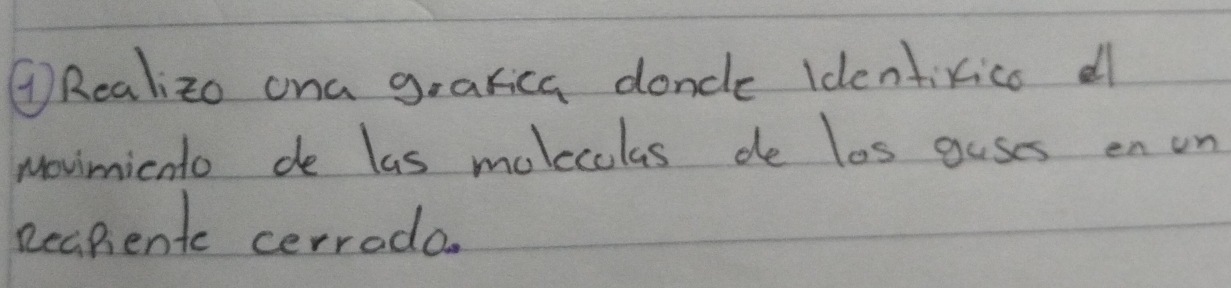 ① Realizo una grafica donde identifico el
Movimiento de las moleculas de los gases en un
Recipiente cerrado.